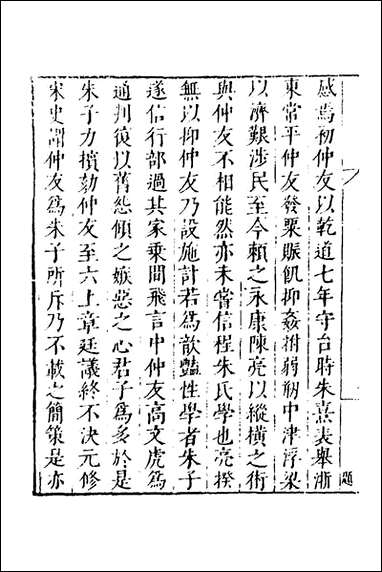 感焉初仲友以乾道七年守台時朱熹表舉浙
東常平仲友發粟賑飢抑姦拊弱刱中津浮梁
以濟艱涉民至今賴之永康陳亮以縱橫之術
與仲友不相能然亦未嘗信程朱氏學也亮揆
無以抑仲友乃設施計若為歆豔性學者朱子
遂信行部過其家乗間飛言中仲友高文虎為
通判復以舊怨傾之嫉惡之心君子為多於是
朱子力擯劾仲友至六上章廷議終不決元修
宋史謂仲友為朱子所斥乃不載之簡策是亦
題